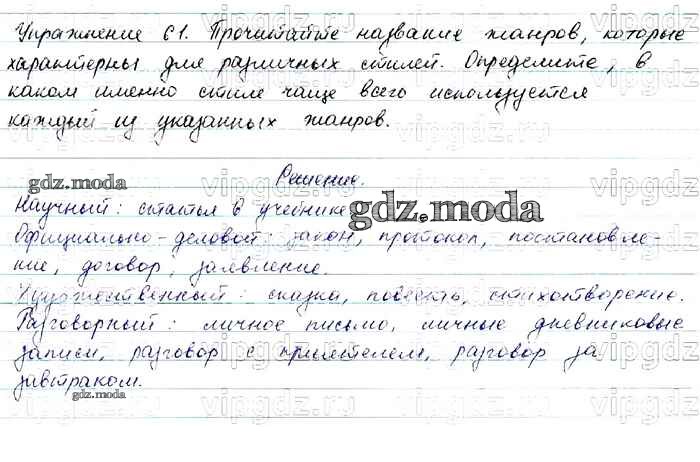 Упражнение 61. Прочитайте название жанров, которые
характерны для различных стилей. Определите, в
каком именно стиле чаще всего используется
каждый из указанных жанров.
Решение.
gdz.moda
Научный: статья в учебнике
gdz.moda
Официально-деловой: закон, протокол, постановле-
ние, договор, заявление.
Художественный: сказка, повесть, стихотворение.
Разговорный: личное письмо, личные дневниковые
записи, разговор с приятелем, разговор за
завтраком.
gdz.moda
vipgdz